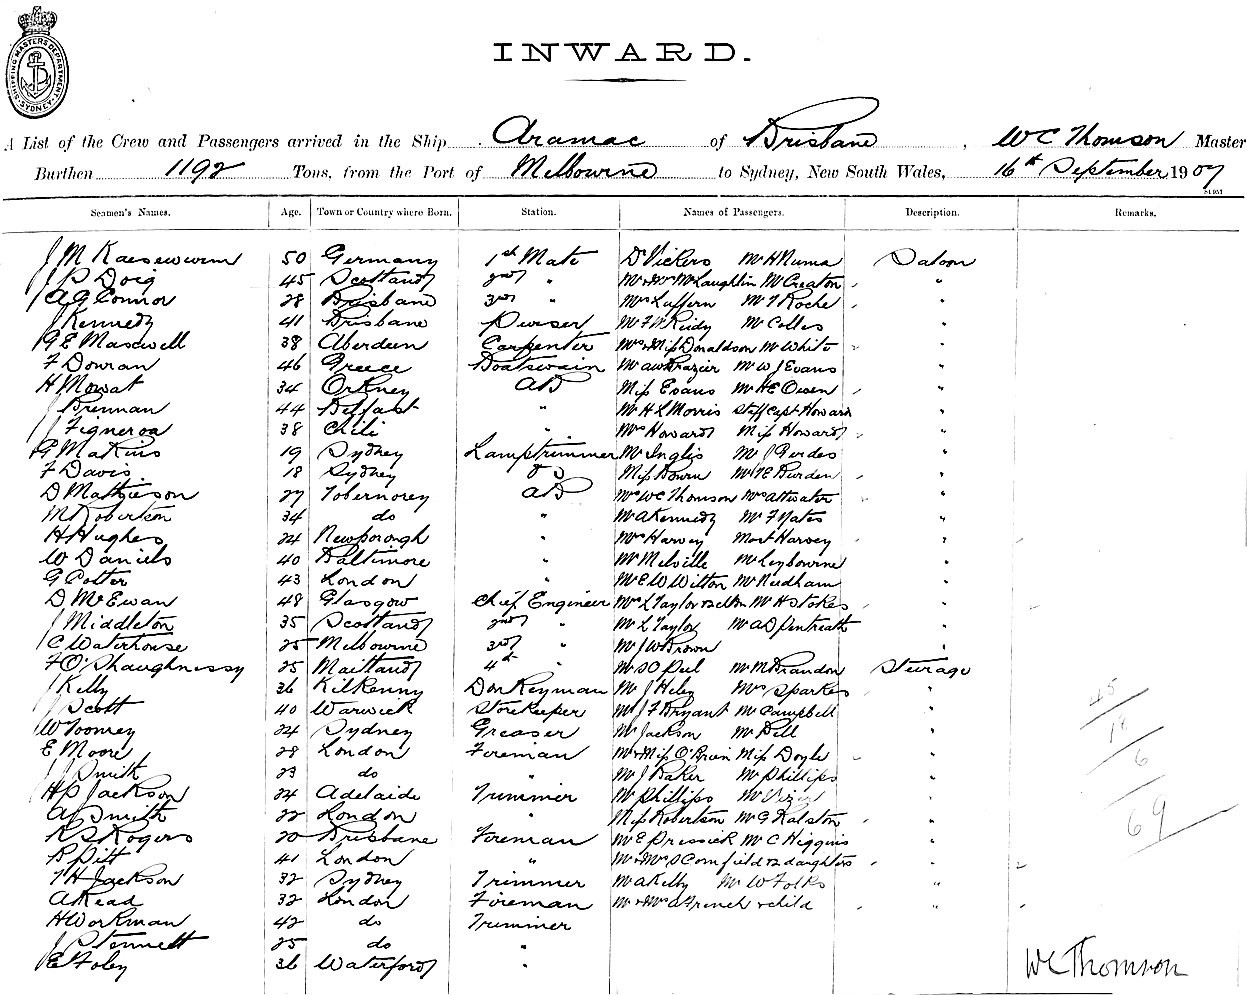 SHIPPING MASTERS DEPARTMENT SYDNEY
INWARD.
A List of the Crew and Passengers arrived in the Ship Aramac of Brisbane, W C Thomson Master
Burthen 1192 Tons, from the Port of Melbourne to Sydney, New South Wales, 16th September 1907
Seamen's Names. Age. Town or Country where Born. Station. Names of Passengers. Description. Remarks.
J M Kaesewurm 50 Germany 1st Mate Dr Vickers Mr H Numa Saloon
J P Doig 45 Scotland 2nd " Mr & Mrs McLaughlin Mr Creaton "
A G Connor 28 Brisbane 3rd " Mrs Luffern Mr T Roche "
J Kennedy 41 Brisbane Purser Mr F W Reidy Mr Colles "
G E Maxwell 38 Aberdeen Carpenter Mrs & Miss Donaldson Mr White "
F Dowran 46 Greece Boatswain Mr A W Frazier Mr W J Evans "
H Mowat 34 Orkney AB Miss Evans Mr H E Owen "
J Brennan 44 Belfast " Mr H L Morris Staff Capt Howard "
J Figneroa 38 Chili " Mrs Howard Miss Howard "
G Makins 19 Sydney Lamptrimmer Mr Inglis Mr J Gerdes "
F Davis 18 Sydney O S Miss Bourn Mr T E Burden "
D Mathieson 27 Tobermorey AB Mrs W C Thomson Mrs Attwater "
M Roberton 34 do " Mr A Kennedy Mr F Yates "
H Hughes 24 Newborough " Mrs Harvey Mast Harvey "
W Daniels 40 Baltimore " Mr Melville Mr Leybourne "
G Potter 43 London " Mr E W Wilton Mr Needham "
D McEwan 48 Glasgow Chief Engineer Mrs L Taylor & 2 chldn Mr H Stokes "
J Middleton 35 Scotland 2nd " Mr L Taylor Mr A D Pentreath "
C Waterhouse 25 Melbourne 3rd " Mr J W Brown "
F O'Shaughnessy 25 Maitland 4th " Mr S O Peel Mr M Brandon Steerage
J Kelly 36 Kilkenny Donkeyman Mr J Hely Mrs Sparkes "
J Scott 40 Warwick Storekeeper Mr J F Bryant Mr Campbell "
W Toomey 24 Sydney Greaser Mr Jackson Mr Dell "
E Moore 28 London Fireman Mr & Miss O'Brien Miss Doyle "
J Smith 23 do " Mr J Baker Mr Phillips "
H P Jackson 24 Adelaide Trimmer Mr Phillips Mr "
A J Smith 22 London " Miss Robertson Mr G Ralston "
R S Rogers 20 Brisbane Fireman Mr E Pressick Mr C Higgins "
R Pitt 41 London " Mr & Mrs S Cornfield & 2 daughters "
T H Jackson 32 Sydney Trimmer Mr A Kelly Mr W Folks "
A Read 32 London Fireman Mr & Mrs A French & child "
H Workman 42 do Trimmer
J Stennett 25 do "
E Foley 36 Waterford "
45
18
6
69
W C Thomson